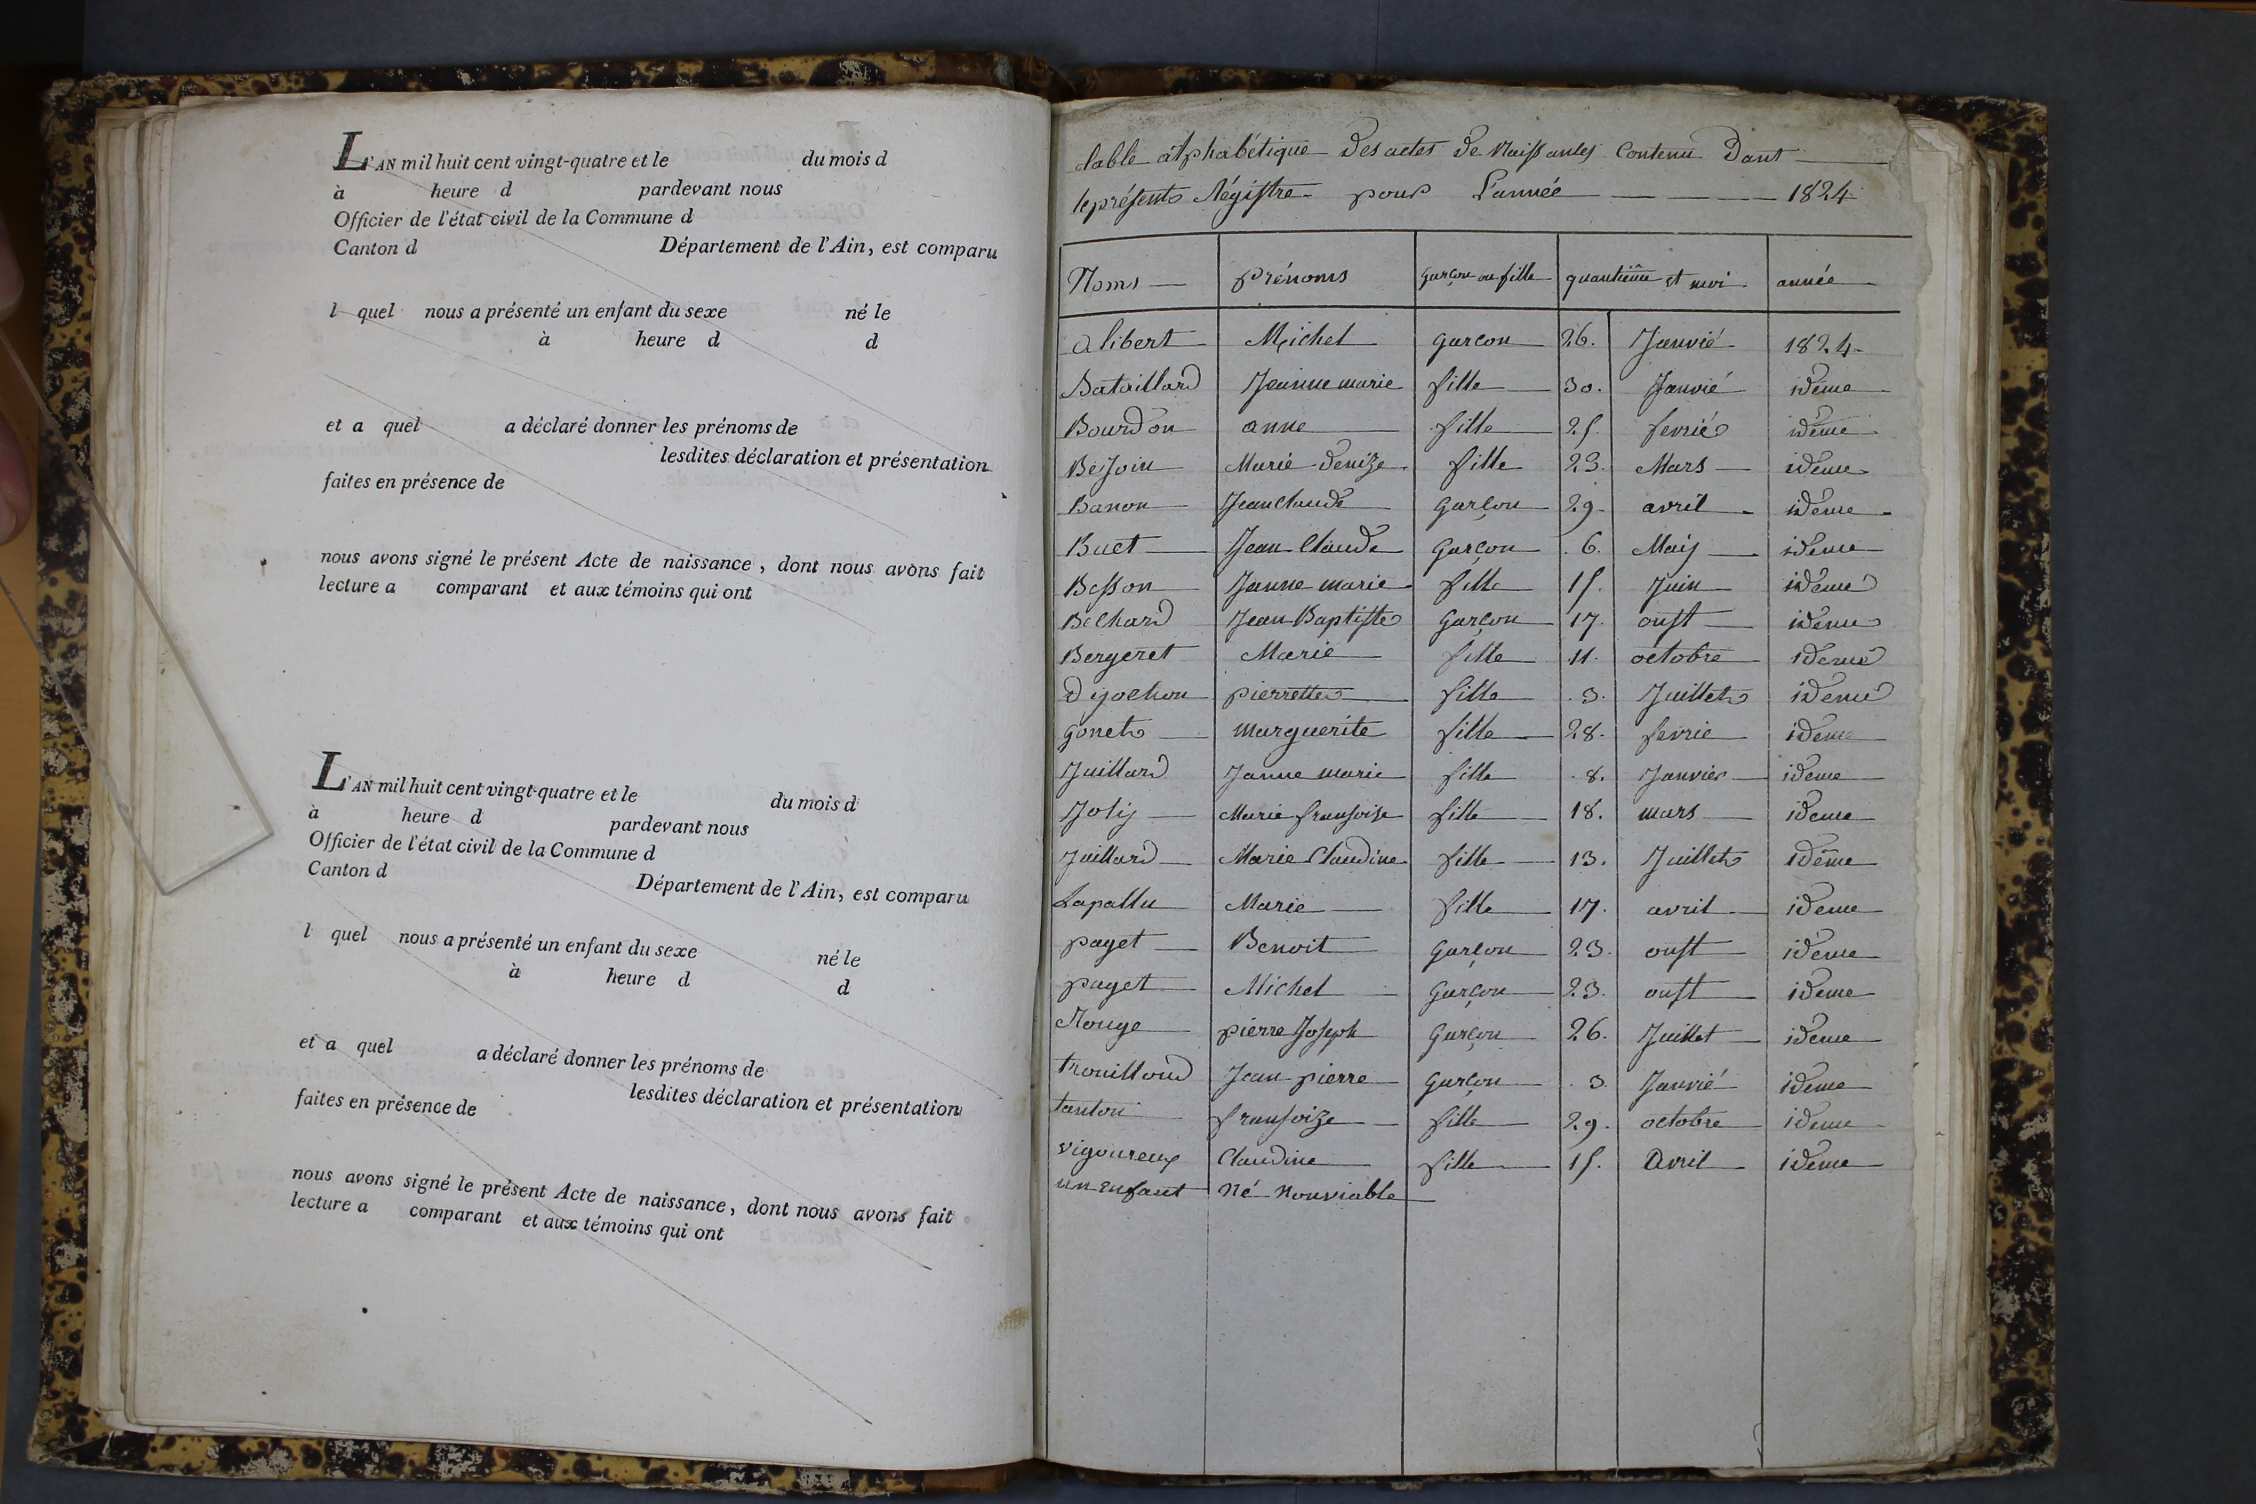 L'AN mil huit cent vingt-quatre et le du mois d
à heure d pardevant nous
Officier de l'état civil de la Commune d
Canton d Département de l'Ain, est comparu
l quel nous a présenté un enfant du sexe né le
à heure d d
et a quel a déclaré donner les prénoms de
lesdites déclaration et présentation
faites en présence de
nous avons signé le présent Acte de naissance, dont nous avons fait
lecture a comparant et aux témoins qui ont
L'AN mil huit cent vingt-quatre et le du mois d
à heure d pardevant nous
Officier de l'état civil de la Commune d
Canton d Département de l'Ain, est comparu
l quel nous a présenté un enfant du sexe né le
à heure d d
et a quel a déclaré donner les prénoms de
lesdites déclaration et présentation
faites en présence de
nous avons signé le présent Acte de naissance, dont nous avons fait
lecture a comparant et aux témoins qui ont
table alphabétique des actes de Naissances Contenu Dans
le présents Régistre pour L'année 1824
Noms prénoms garçon ou fille quantième et moi année
alibert Michel garcon 26. Janvié 1824
Bataillard Jeanne marie fille 30. Janvié idème
Bourdon anne fille 25. fevrié idème
Bejoin Marie denize fille 23. Mars idème
Banon Jean Claude Garçon 29 avril idème
Buet Jean Claude Garçon 6. Maij idème
Besson Janne marie fille 15. Juin idème
Belhard Jean Baptiste Garçon 17. oust idème
Bergeret Marie fille 11. octobre idème
digochon pierrette fille 3. Juillet idème
gonet marguerite fille 28. fevrie idème
Juillard Janne marie fille 8. Janvier idème
Jolij Marie fransoise fille 18. mars idème
Juillard Marie Claudine fille 13. Juillet idème
Lapallu Marie fille 17. avril idème
payet Benoit Garçon 23. oust idème
payet Michel Garçon 23. oust idème
Rouge pierre Joseph Garçon 26. Juillet idème
trouilloud Jean pierre Garçon 3 Janvié idème
tanton fransoize fille 29. octobre idème
vigoureux Claudine fille 15. Avril idème
un enfant Né nonviable